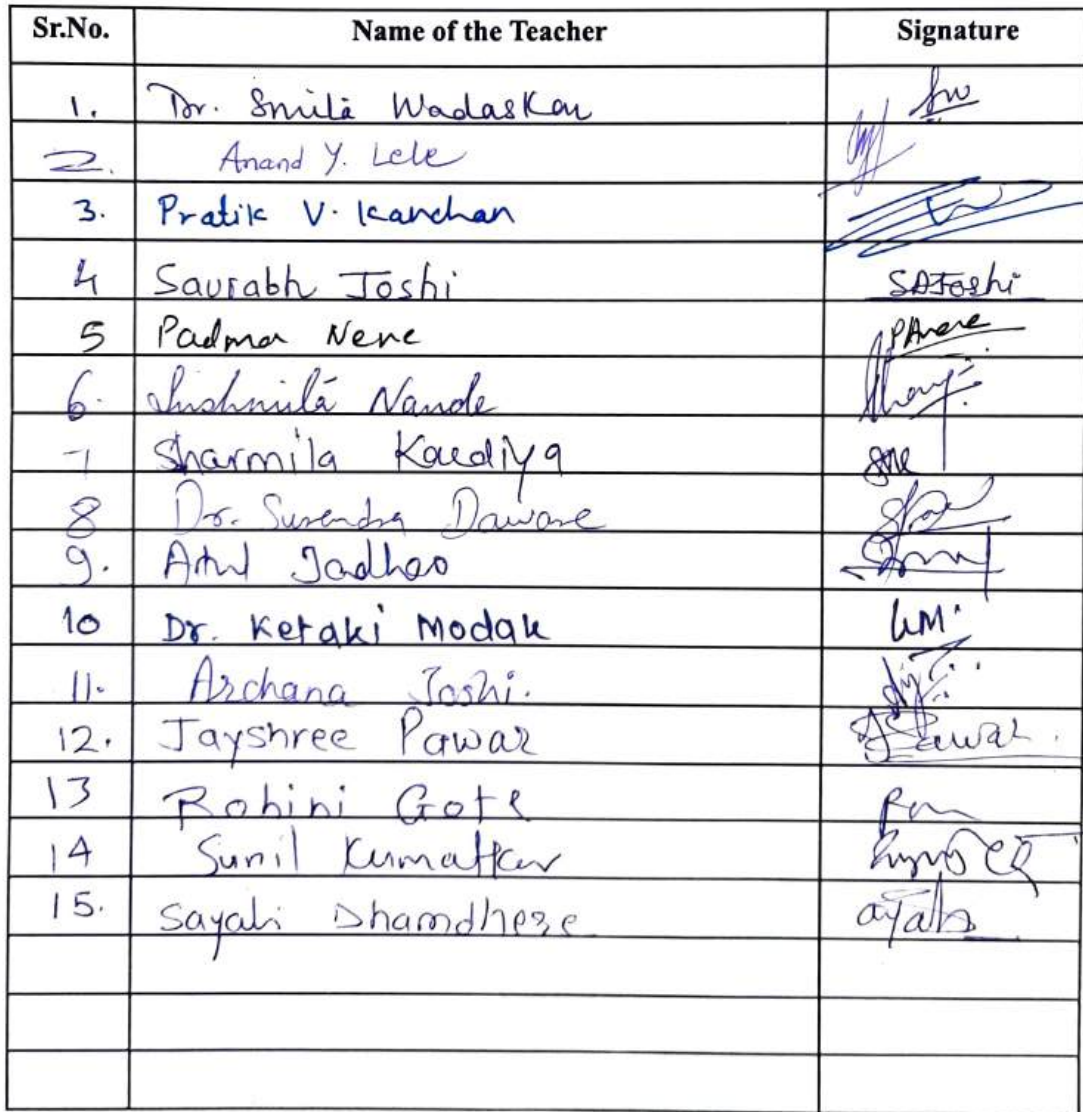 Sr.No. Name of the Teacher Signature
1. Dr. Smita Wadaskar
2. Anand Y. Lele
3. Pratik V. Kanchan
4 Saurabh Joshi SAJoshi
5 Padma Nene PANene
6. Sushmita Nande
7 Sharmila Kardiya
8 Dr. Surendra Daware
9. Atul Jadhao
10 Dr. Ketaki Modak KM.
11. Archana Joshi.
12. Jayshree Pawar JPawar.
13 Rohini Gote
14 Sunil
15. Sayali Dhamdhere